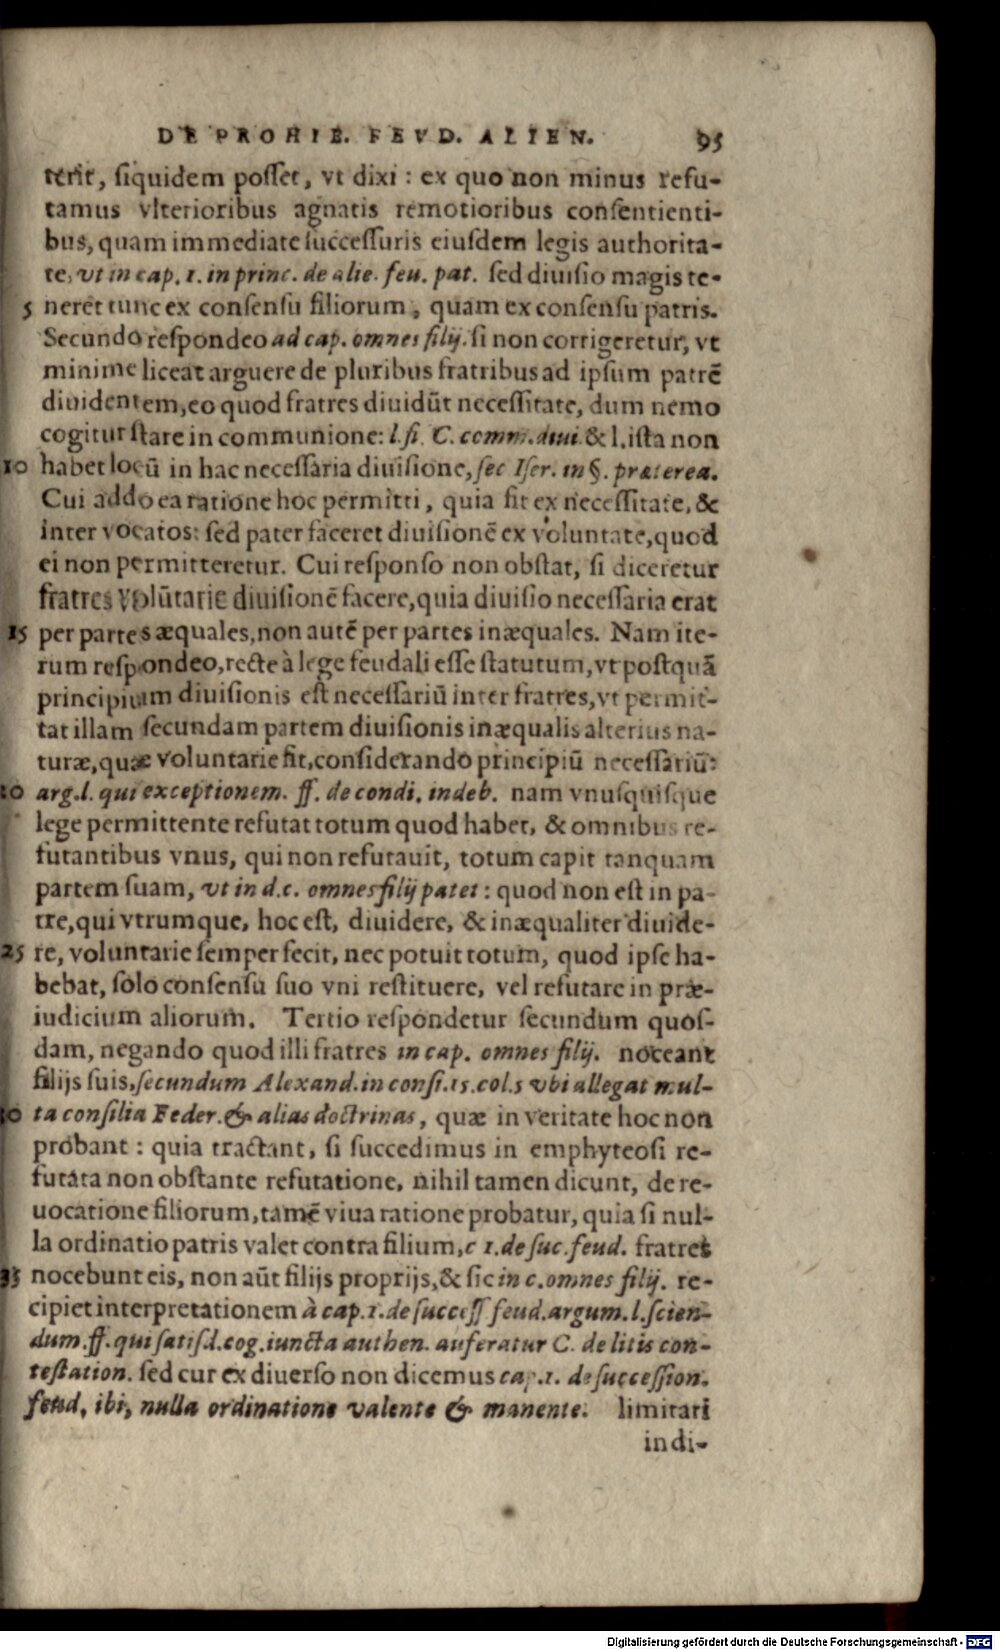 DE PROHIB. FEVD. ALIEN. 95
terit, siquidem posset, vt dixi : ex quo non minus refu-
tamus vlterioribus agnatis remotioribus consentienti-
bus, quam immediate successuris eiusdem legis authorita-
te, vt in cap. 1. in princ. de alie. feu. pat. sed diuisio magis te-
5 neret tunc ex consensu filiorum, quam ex consensu patris.
Secundo respondeo ad cap. omnes filij. si non corrigeretur, vt
minime liceat arguere de pluribus fratribus ad ipsum patrẽ
diuidentem, eo quod fratres diuidũt necessitate, dum nemo
cogitur stare in communione: l. fi. C. comm. diui. & l. ista non
10 habet locũ in hac necessaria diuisione, sec Iser. in §. præterea.
Cui addo ea ratione hoc permitti, quia fit ex necessitate, &
inter vocatos: sed pater faceret diuisionẽ ex voluntate, quod
ei non permitteretur. Cui responso non obstat, si diceretur
fratres volũtarie diuisionẽ facere, quia diuisio necessaria erat
15 per partes æquales, non autẽ per partes inæquales. Nam ite-
rum respondeo, recte à lege feudali esse statutum, vt postquã
principium diuisionis est necessariũ inter fratres, vt permit-
tat illam secundam partem diuisionis inæqualis alterius na-
turæ, quæ voluntarie fit, considerando principiũ necessariũ:
20 arg. l. qui exceptionem. ff. de condi. indeb. nam vnusquisque
lege permittente refutat totum quod habet, & omnibus re-
futantibus vnus, qui non refutauit, totum capit tanquam
partem suam, vt in d. c. omnes filij patet : quod non est in pa-
tre, qui vtrumque, hoc est, diuidere, & inæqualiter diuide-
25 re, voluntarie semper fecit, nec potuit totum, quod ipse ha-
bebat, solo consensu suo vni restituere, vel refutare in præ-
iudicium aliorum. Tertio respondetur secundum quos-
dam, negando quod illi fratres in cap. omnes filij. noceant
filijs suis, secundum Alexand. in consi. 15. col. 5 vbi allegat mul-
30 ta consilia Feder. & alias doctrinas, quæ in veritate hoc non
probant : quia tractant, si succedimus in emphyteosi re-
futata non obstante refutatione, nihil tamen dicunt, de re-
uocatione filiorum, tamẽ viua ratione probatur, quia si nul-
la ordinatio patris valet contra filium, c 1. de suc. feud. fratres
35 nocebunt eis, non aũt filijs proprijs, & sic in c. omnes filij. re-
cipiet interpretationem à cap. 1. de success feud. argum. l. scien-
dum. ff. qui satisd. cog. iuncta authen. auferatur C. de litis con-
testation. sed cur ex diuerso non dicemus cap. 1. de succession.
feud, ibi, nulla ordinatione valente & manente. limitari
indi-
Digitalisierung gefördert durch die Deutsche Forschungsgemeinschaft - DFG